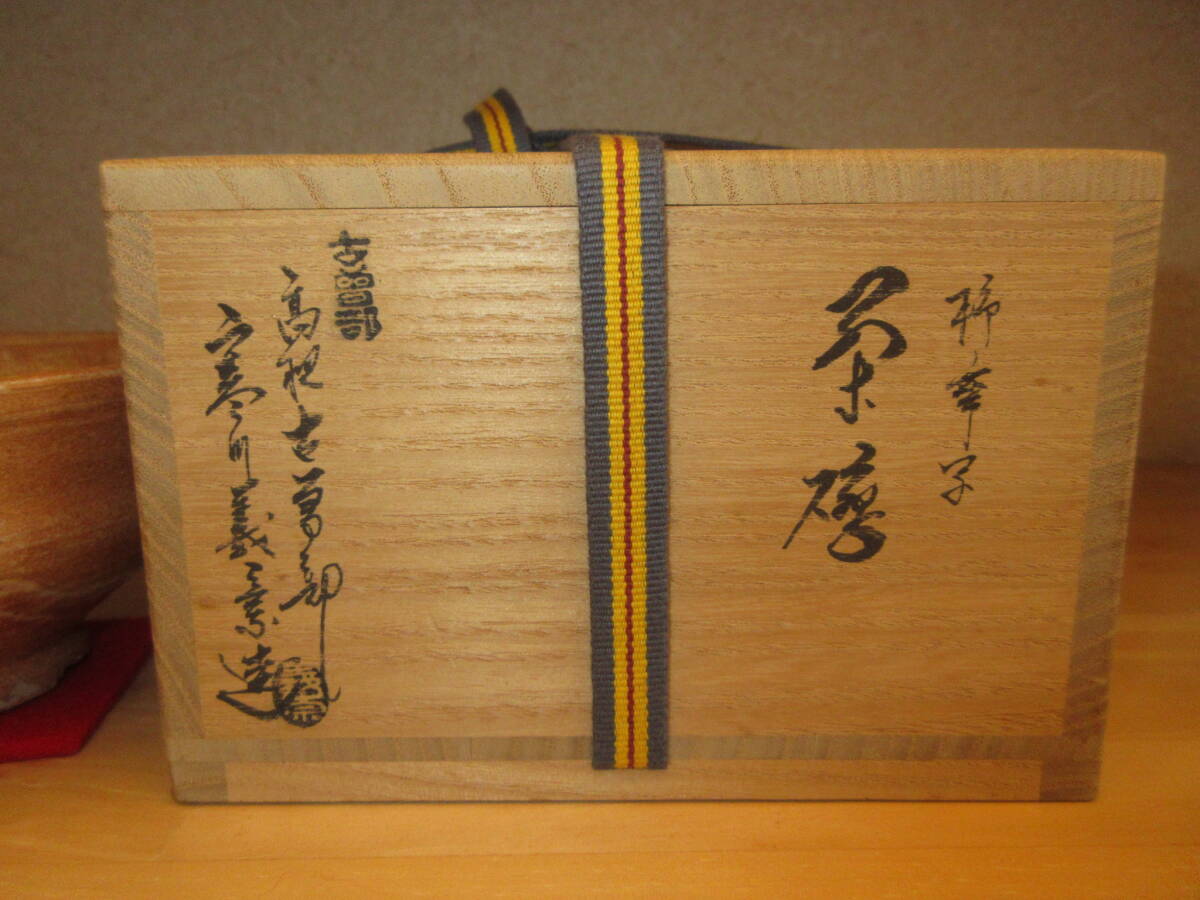 柿ノ蔕写
茶碗
古曽部
高槻古曽部
寒川義崇造